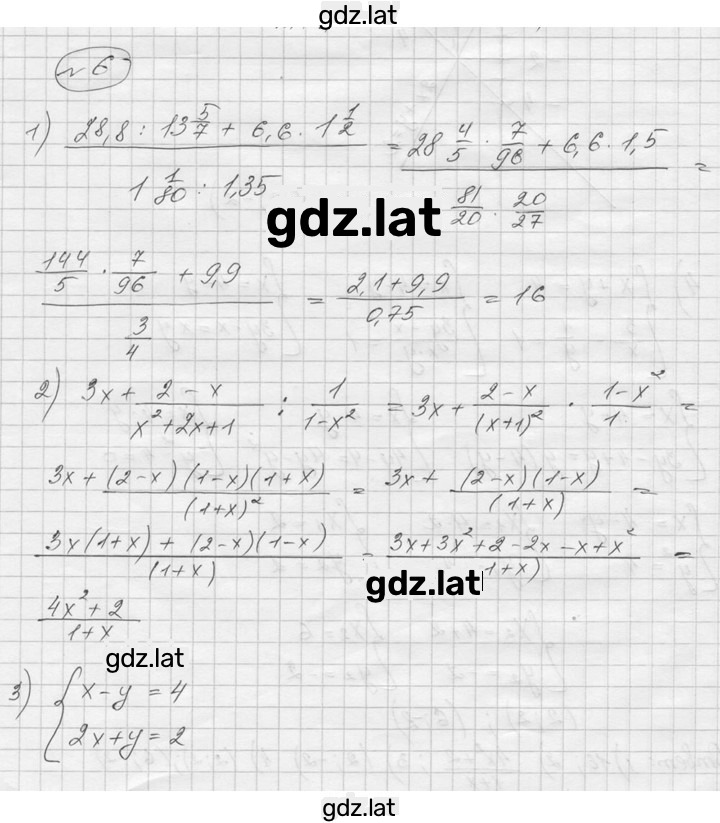 gdz.lat
№6
1) (28,8 : 13 5/7 + 6,6 · 1 1/2) / (1 1/80 : 1,35) = (28 4/5 · 7/96 + 6,6 · 1,5) / (81/20 · 20/27) =
gdz.lat
(144/5 · 7/96 + 9,9) / (3/4) = (2,1 + 9,9) / 0,75 = 16
2) 3x + (2 - x)/(x² + 2x + 1) : 1/(1 - x²) = 3x + (2 - x)/(x+1)² · (1 - x²)/1 =
3x + (2-x)(1-x)(1+x)/(1+x)² = 3x + (2-x)(1-x)/(1+x) =
(3x(1+x) + (2-x)(1-x))/(1+x) = (3x + 3x² + 2 - 2x - x + x²)/(1+x) =
gdz.lat
(4x² + 2)/(1+x)
gdz.lat
3) { x - y = 4
2x + y = 2
gdz.lat